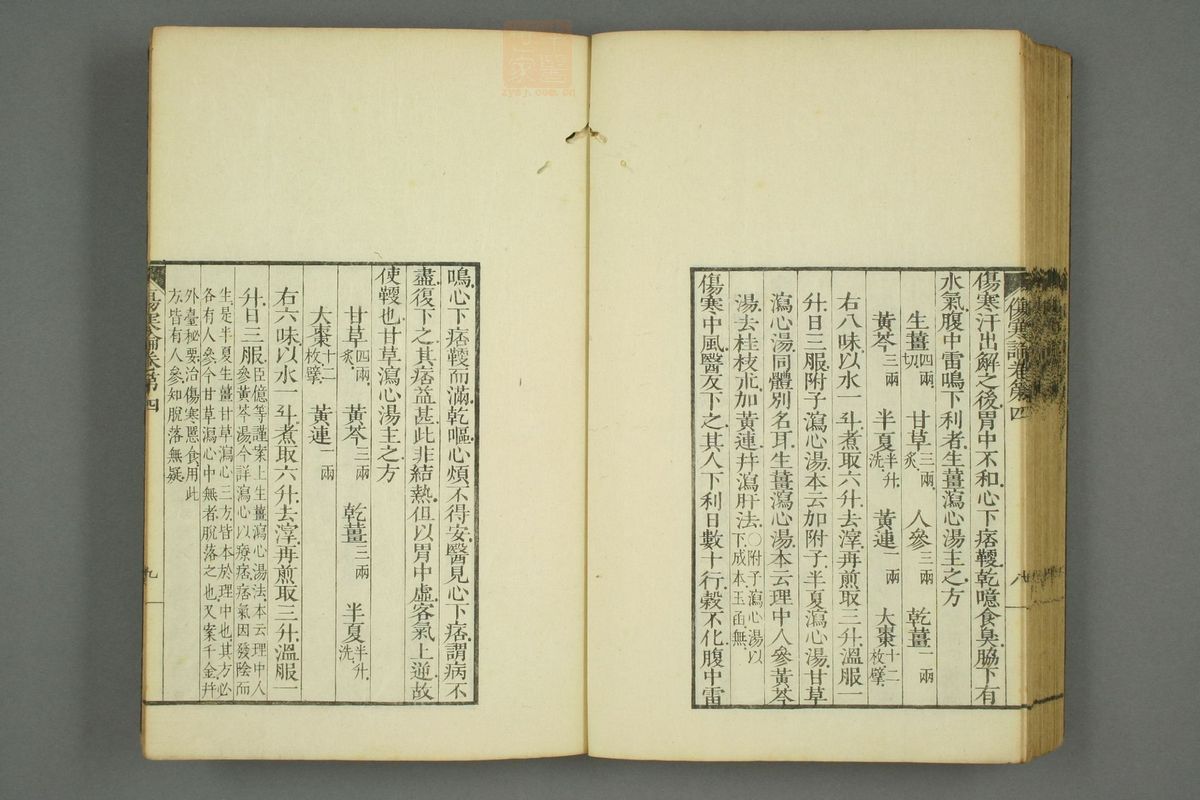 傷寒論卷第四
八
傷寒汗出解之後胃中不和心下痞鞕乾噫食臭脇下有
水氣腹中雷鳴下利者生薑瀉心湯主之方
生薑四兩切 甘草三兩炙 人參三兩 乾薑一兩
黃芩三兩 半夏半升洗 黃連一兩 大棗十二枚擘
右八味以水一斗煮取六升去滓再煎取三升溫服一
升日三服附子瀉心湯本云加附子半夏瀉心湯甘草
瀉心湯同體別名耳生薑瀉心湯本云理中人參黃芩
湯去桂枝朮加黃連并瀉肝法○附子瀉心湯以下成本玉函無
傷寒中風醫反下之其人下利日數十行穀不化腹中雷
鳴心下痞鞕而滿乾嘔心煩不得安醫見心下痞謂病不
盡復下之其痞益甚此非結熱但以胃中虛客氣上逆故
使鞕也甘草瀉心湯主之方
甘草四兩炙 黃芩三兩 乾薑三兩 半夏半升洗
大棗十二枚擘 黃連一兩
右六味以水一斗煮取六升去滓再煎取三升溫服一
升日三服臣億等謹案上生薑瀉心湯法本云理中人
參黃芩湯今詳瀉心以療痞痞氣因發陰而
生是半夏生薑甘草瀉心三方皆本於理中也其方必
各有人參今甘草瀉心中無者脫落之也又案千金幷
外臺秘要治傷寒䘌食用此
方皆有人參知脫落無疑
傷寒論卷第四
九
中醫世家
zysj.com.cn